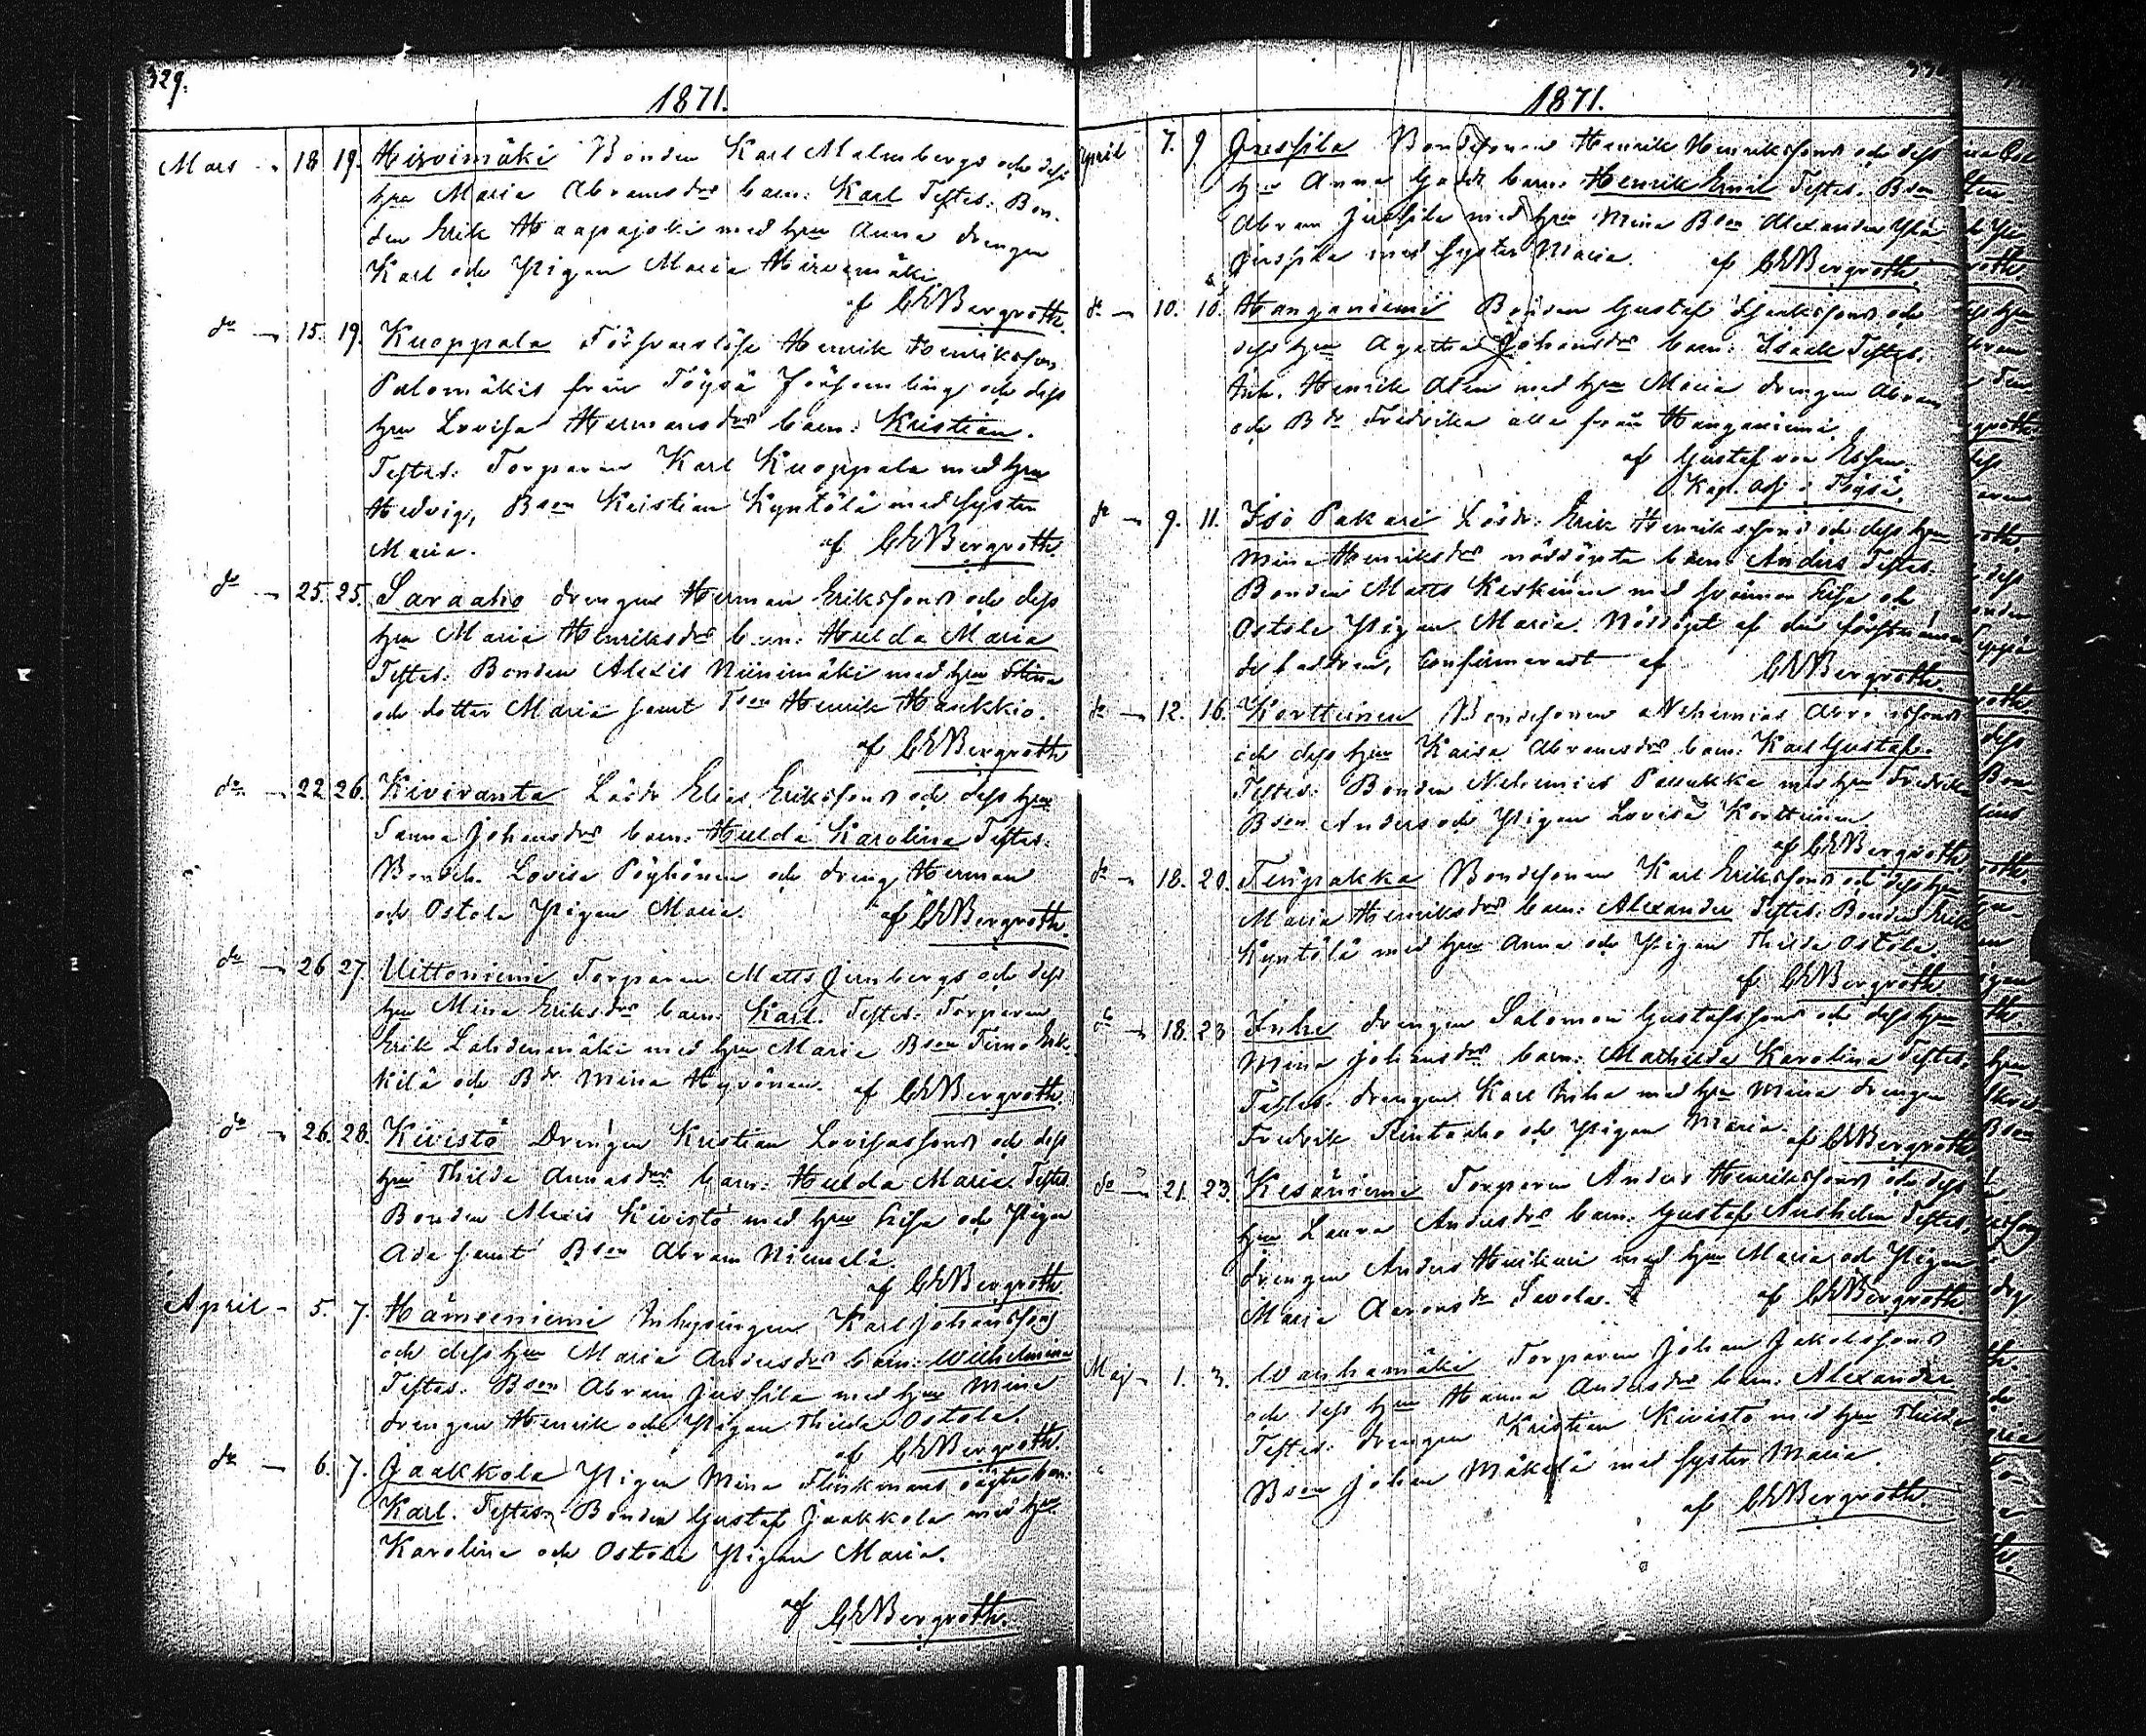 329.
1871.
Mars 18 19. Hirvimäki Bonden Karl Malmbergs och dess
hru Maria Abramsdrs barn: Karl Testes: Bon-
den Erik Haapajoki med hru Anna drengen
Karl och Pigan Maria Hirvimäki
af CEBergroth.
do 15. 19. Kuoppala Försvarslöse Henrik Henriksson
Palomäkis från Töysä Församling och dess
hru Lovisa Hermansdrs barn: Kristian.
Testes: Torparen Karl Kuoppala med hru
Hedvig, Bson Kristian Kyntölä med syster
Maria. af CEBergroth.
do 25. 25. Saraaho drengen Herman Erikssons och dess
hru Maria Henriksdrs barn: Hulda Maria
Testes: Bonden Alexis Niinimäki med hru Stina
och dotter Maria samt Tson Henrik Haukkio.
af CEBergroth
do 22 26. Kiviranta Lösdr Elias Erikssons och dess hru
Sanna Johansdrs barn: Hulda Karolina Testes:
Lovisa Pöyhönen och dreng Herman
och Ostola Pigan Maria. af CEBergroth.
do 26 27. Uittoniemi Torparen Matts Jernbergs och dess
hru Mina Eriksdrs barn: Karl. Testes: Torparen
Erik Lahdenmäki med hru Maria Bson Simo Erk-
kilä och Bdr Mina Hyvönen. af CEBergroth.
do 26. 28. Kivistö Drengen Kristian Lovisassons och dess
hru Thilda Annasdrs barn: Hulda Maria. Testes
Bonden Alexis Kivistö med hru Lisa och Pigan
Ada samt Bson Abram Niemelä.
af CEBergroth
April 5. 7. Hämeeniemi Inhysingen Karl Johanssons
och dess hru Maria Andersdrs barn: Wilhelmina
Testes: Bson Abram Jussila med hru Mina
drengen Henrik och Pigan Thilda Ostola.
af CEBergroth.
do 6. 7. Jaakkola Pigan Mina Flinkmans oägta barn:
Karl. Testes: Bonden Gustaf Jaakkola med hru
Karolina och Ostola Pigan Maria.
af CEBergroth.
1871.
April 7. 9 Jussila Bondesonen Henrik Henrikssons och dess
hru Anna barn: Henrik Emil Testes: Bson
Abram Jussila med hru Mina Bson Alexander Yli
Jussila med syster Maria. af CEBergroth.
do 10. 10. Hanganiemi Bonden Gustaf och
dess hru Agatha Johansdrs barn: Isaak Testes.
Inh. Henrik Alen med hru Maria drengen Abram
och Bdr Fredrika alla från Hanganiemi.
af Gustaf von Essen.
Kap. adj. i Töysä.
do 9. 11. Iso Pakari Lösdr. Erik Henrikssons och dess hru
Mina Henriksdrs nöddöpta barn: Anders Testes.
Bonden Matts Keskinen med Lisa och
Ostola Pigan Maria. Nöddöpt af den förstnämn-
de faddren, confirmeradt af CEBergroth.
do 12. 16. Korttinen Bondesonen Nehemias Abramssons
och dess hru Kaisa Abramsdrs barn: Karl Gustaf.
Testes: Bonden Nehemias Passukka med hru Fredrika
Bson Anders och Pigan Lovisa Korttinen
af CEBergroth.
do 18. 20. Teripakka Bondesonen Karl Erikssons och dess hru
Maria Henriksdrs barn: Alexander Testes: Bonden Erik
Kyntölä med hru Anna och Pigan Thilda Ostola.
af CEBergroth
do 18. 23 Inha drengen Salomon Gustafssons och dess hru
Mina Johansdrs barn: Mathilda Karolina Testes.
Testes: drengen Karl Inha med hru Maria drengen
Fredrik Rintaaho och Pigan Maria. af CEBergroth.
do 21. 23. Kesäniemi Torparen Anders Henrikssons och dess
hru Laura Andersdrs barn: Gustaf Anshelm Testes
drengen Anders Huikuri med hru Maria och Pigan
Maria Aaronsdr Savola. af CEBergroth
Maj 1. 3. Wanhamäki Torparen Johan Jakobssons
och dess hru Hanna Andersdrs barn: Alexander
Testes: drengen Kristian Kivistö med hru Thilda
Bson Johan Mäkelä med syster Maria.
af CEBergroth.